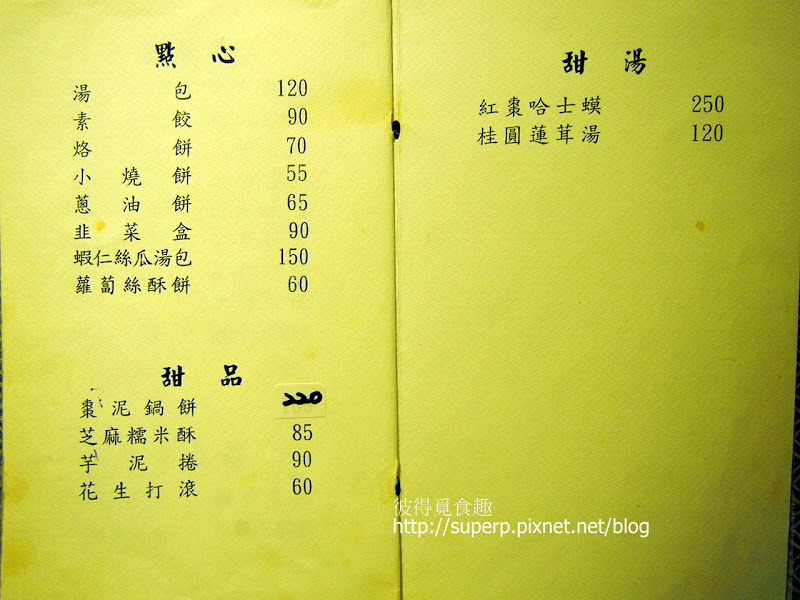 點心
湯包 120
素餃 90
烙餅 70
小燒餅 55
蔥油餅 65
韭菜盒 90
蝦仁絲瓜湯包 150
蘿蔔絲酥餅 60
甜品
棗泥鍋餅 220
芝麻糯米酥 85
芋泥捲 90
花生打滾 60
甜湯
紅棗哈士蟆 250
桂圓蓮茸湯 120
彼得覓食趣
http://superp.pixnet.net/blog